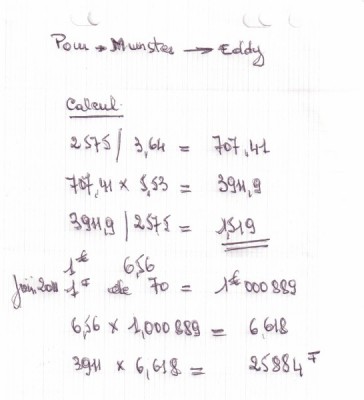 Pour → Munster → Eddy
Calcul
2575 / 3,64 = 707,41
707,41 × 5,53 = 3911,9
3911,9 / 2575 = 1,519
1€ 6,56
Juin 2011 1F de 70 = 1€ 000889
6,56 × 1,000889 = 6,618
3911 × 6,618 = 25884 F